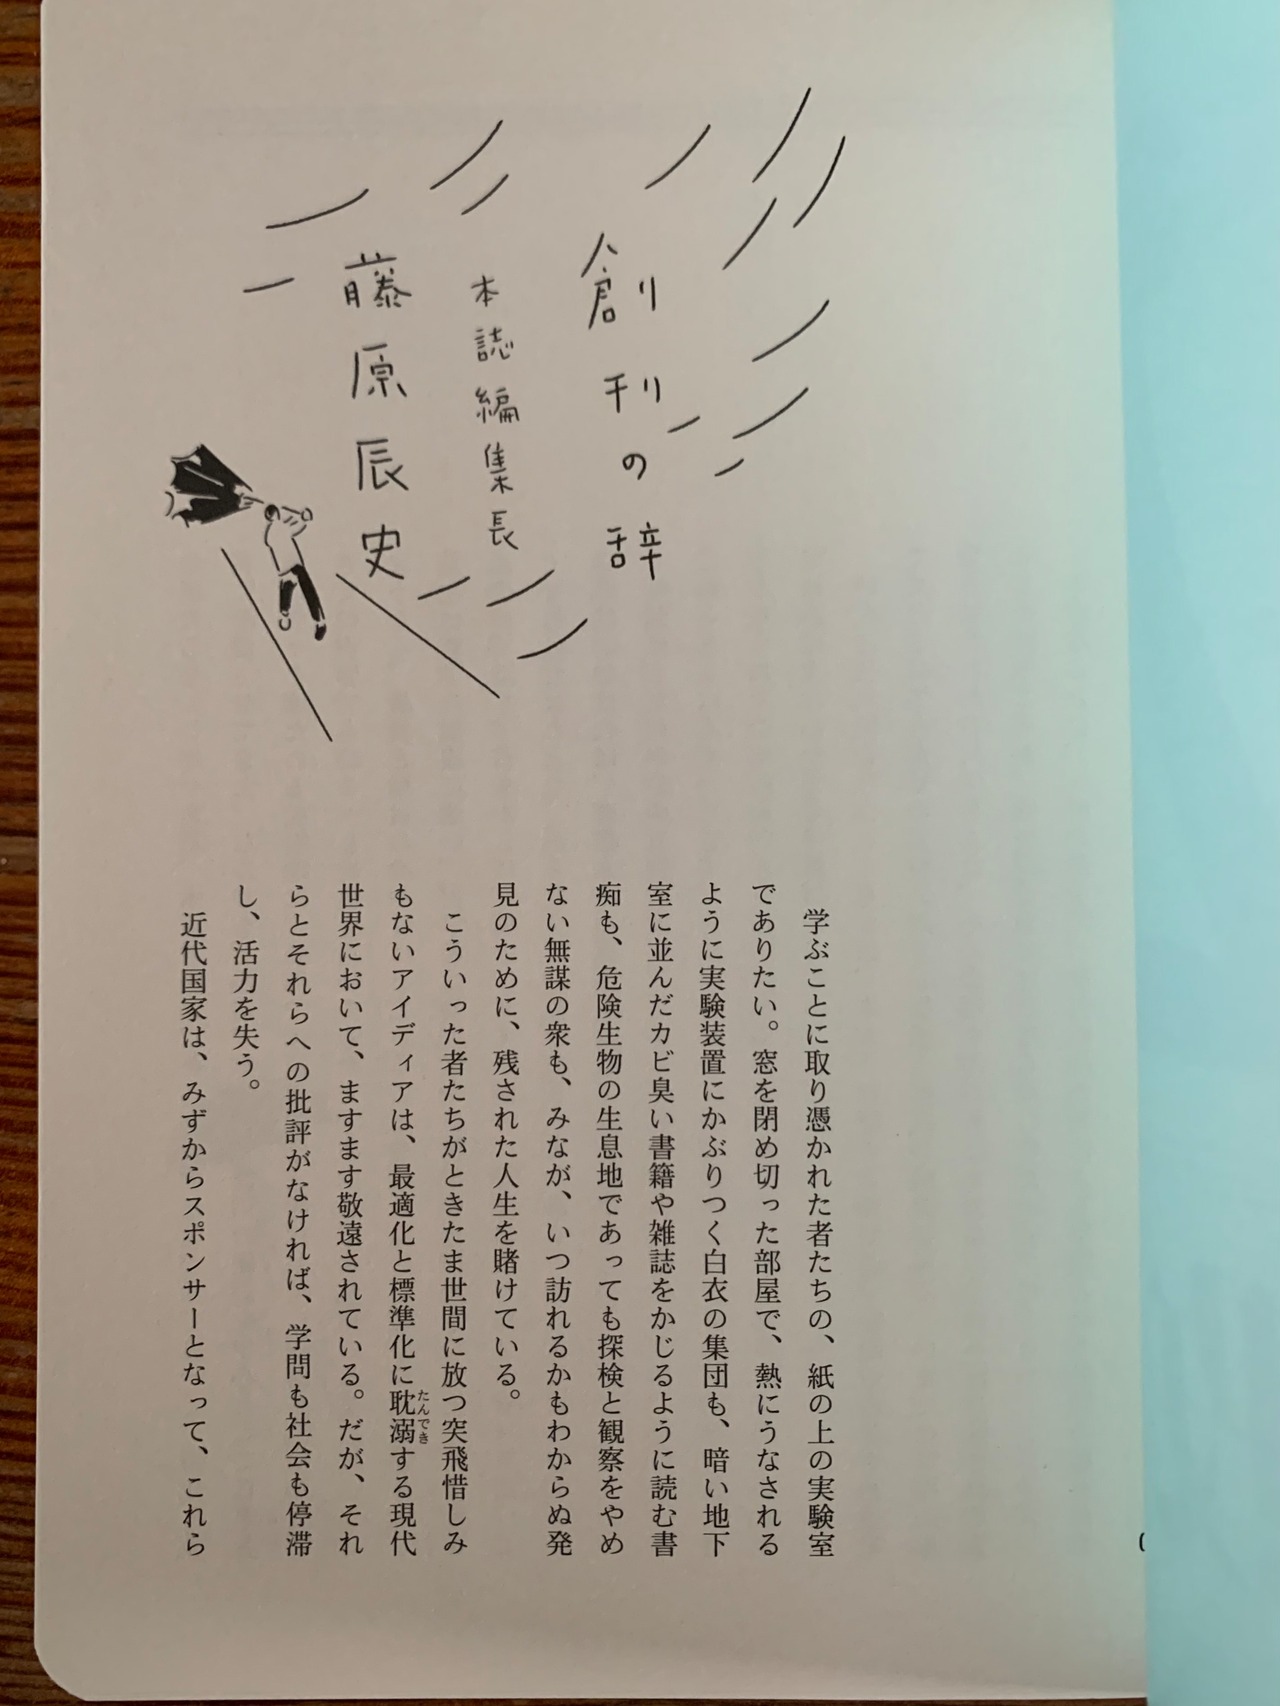 創刊の辞
本誌編集長
藤原辰史
学ぶことに取り憑かれた者たちの、紙の上の実験室
でありたい。窓を閉め切った部屋で、熱にうなされる
ように実験装置にかぶりつく白衣の集団も、暗い地下
室に並んだカビ臭い書籍や雑誌をかじるように読む書
痴も、危険生物の生息地であっても探検と観察をやめ
ない無謀の衆も、みなが、いつ訪れるかもわからぬ発
見のために、残された人生を賭けている。
こういった者たちがときたま世間に放つ突飛惜しみ
もないアイディアは、最適化と標準化に耽溺たんできする現代
世界において、ますます敬遠されている。だが、それ
らとそれらへの批評がなければ、学問も社会も停滞
し、活力を失う。
近代国家は、みずからスポンサーとなって、これら